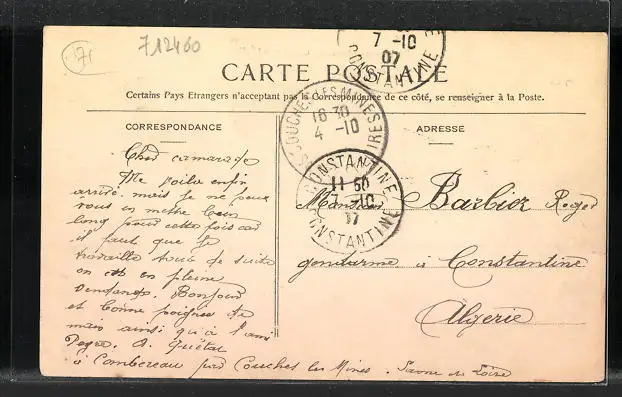 712460
7 -10
07
CONSTANTINE
CARTE POSTALE
Certains Pays Etrangers n'acceptant pas la Correspondance de ce côté, se renseigner à la Poste.
COUCHES-LES-MINES
16 30
4 -10
CORRESPONDANCE
ADRESSE
CONSTANTINE
11 50
-10
07
CONSTANTINE
Cher camarade
Me voila enfin
arrivé. mais je ne peux
vous en mettre bien
long pour cette fois car
il faut que je
travaille tout de suite
on est en pleine
vendange. Bonjour
et bonne poignée de
main ainsi qu'à l'ami
à Combereau par Couches les Mines. Saone et Loire
Monsieur Barbier Roger
gendarme à Constantine
Algerie